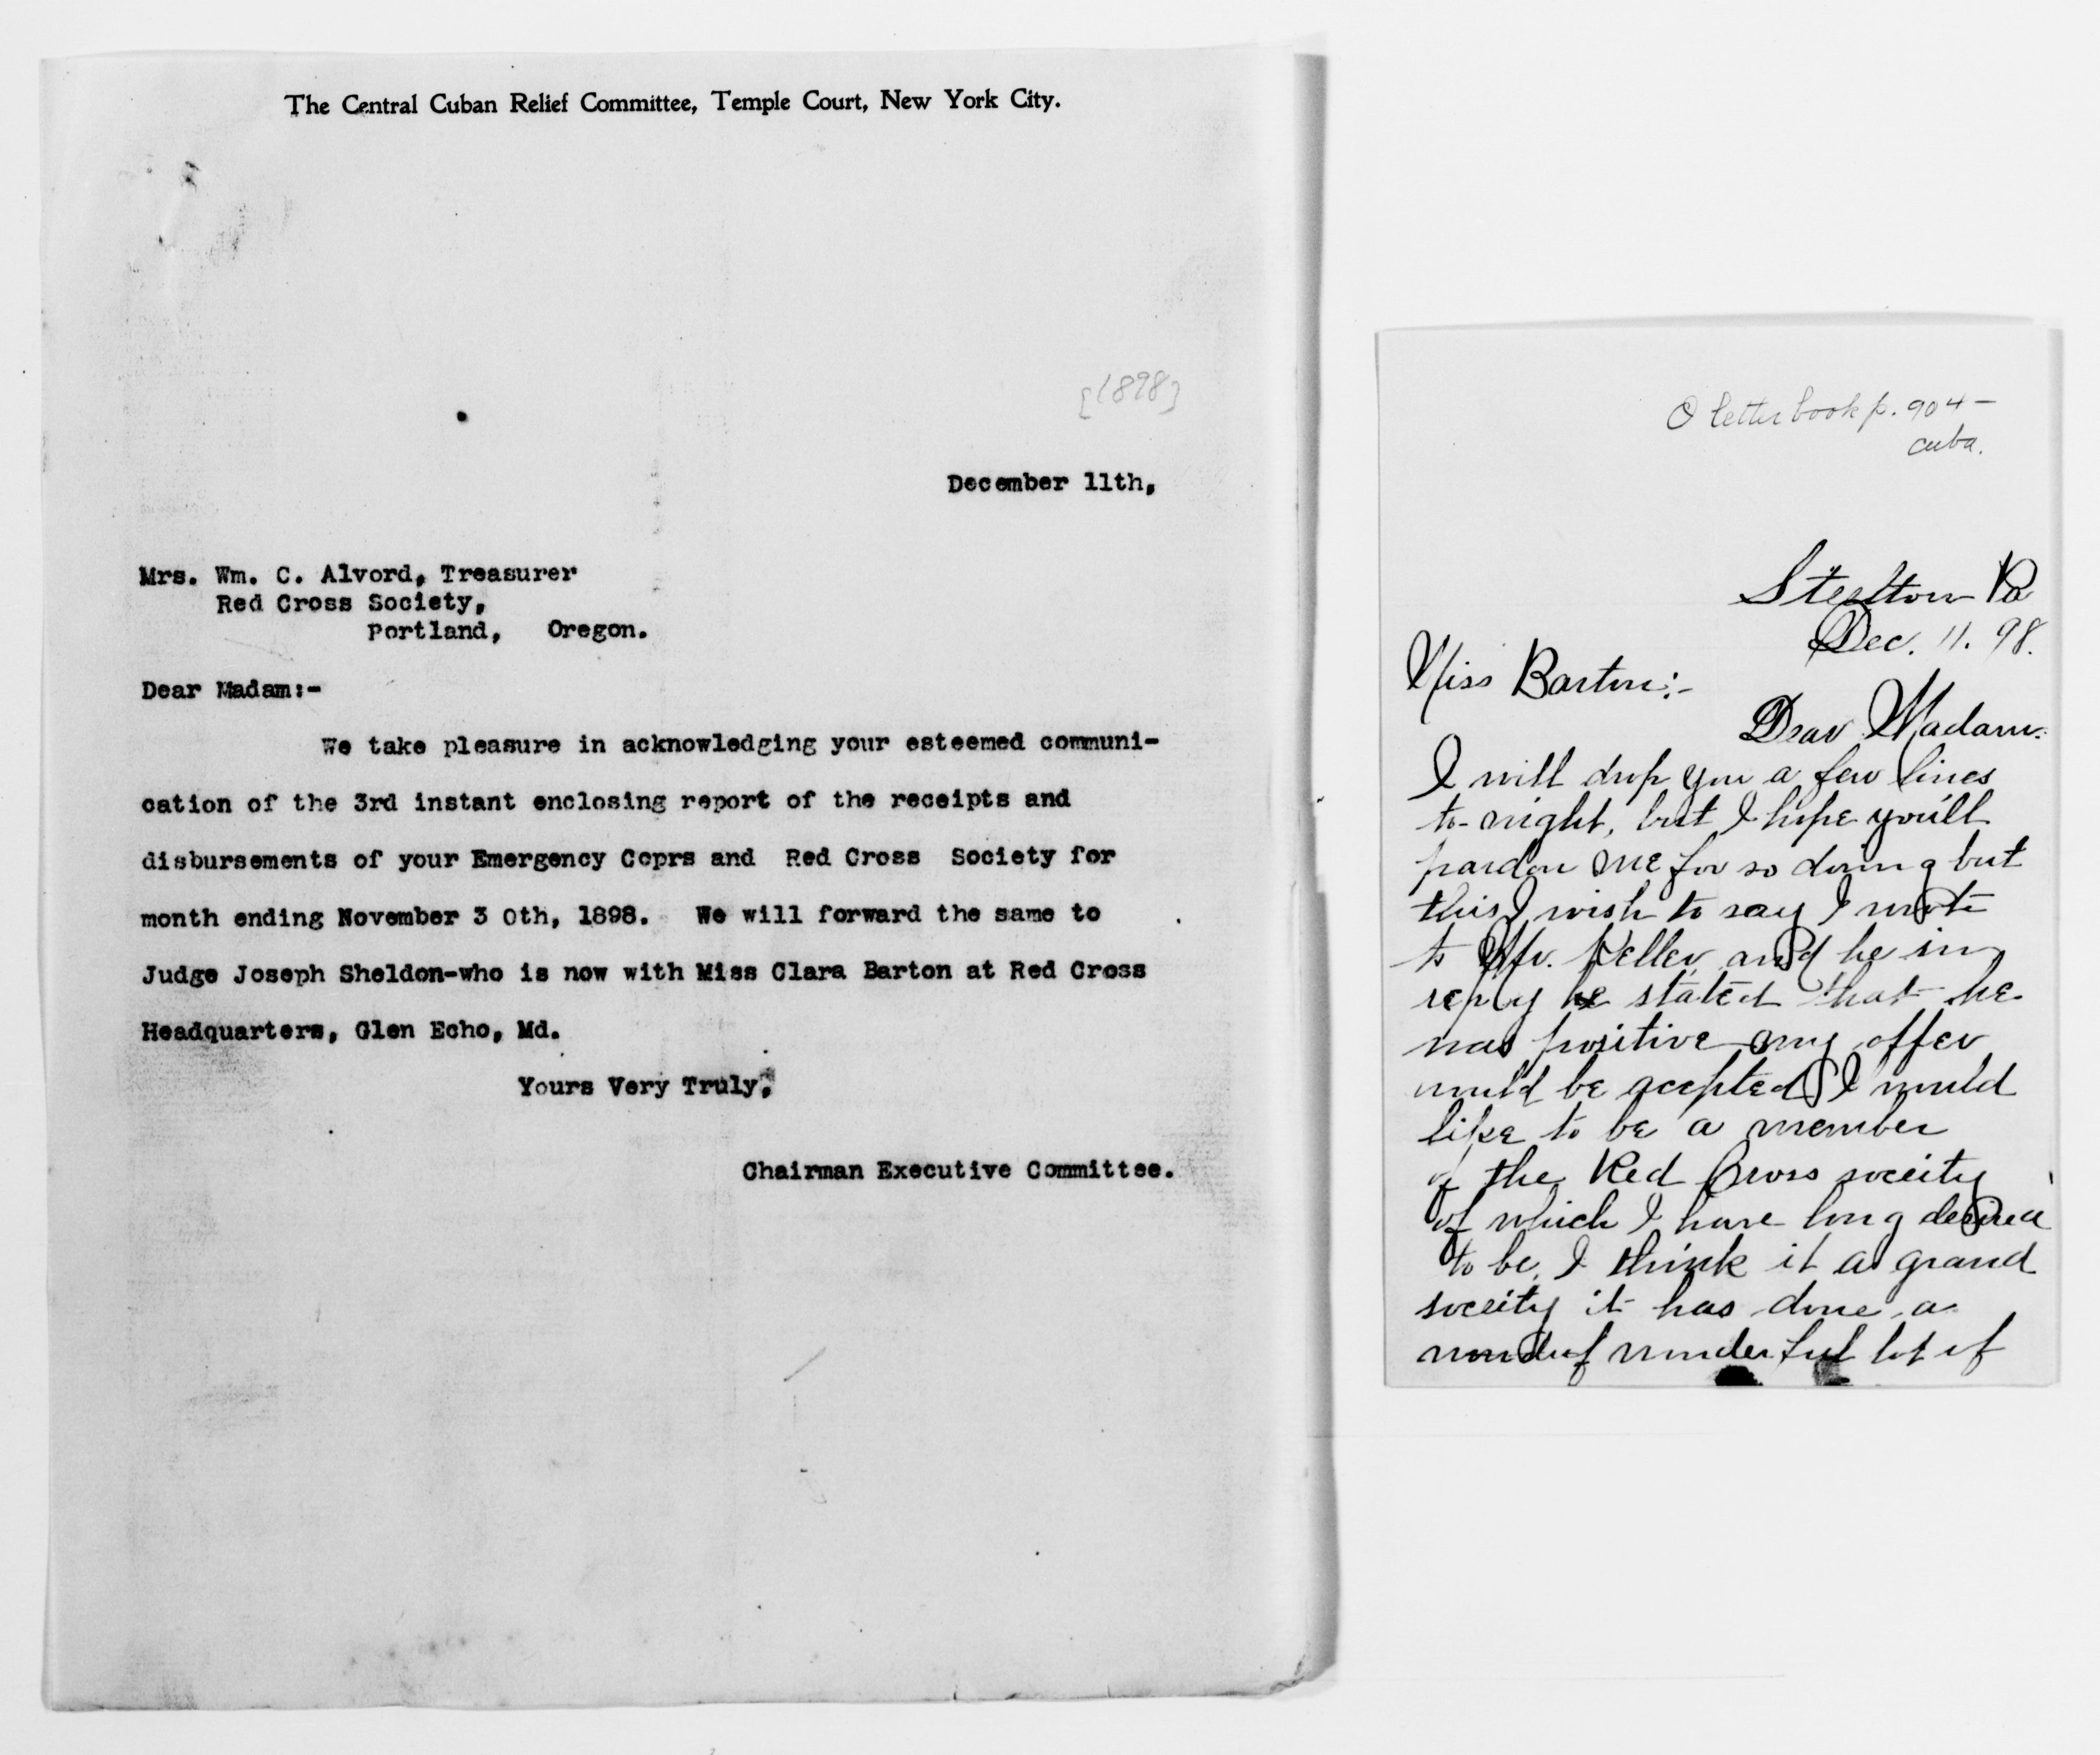 The Central Cuban Relief Committee, Temple Court, New York City.
[1898]
December 11th,
Mrs. Wm. C. Alvord, Treasurer
Red Cross Society,
Portland, Oregon.
Dear Madam:-
We take pleasure in acknowledging your esteemed communi-
cation of the 3rd instant enclosing report of the receipts and
disbursements of your Emergency Ccprs and Red Cross Society for
month ending November 3 0th, 1898. We will forward the same to
Judge Joseph Sheldon-who is now with Miss Clara Barton at Red Cross
Headquarters, Glen Echo, Md.
Yours Very Truly,
Chairman Executive Committee.
letter book p. 904-
Cuba.
Steelton Pa
Dec. 11. 98.
Miss Barton:-
Dear Madam:
I will drop you a few lines
to-night, but I hope you'll
pardon me for so doing but
this I wish to say I wrote
to Mr. Keller and he in
reply he stated that he
was positive my offer
would be acepted I would
like to be a member
of the Red Cross soceity
of which I have long desired
to be. I think it a grand
soceity it has done a
wonderful lot of